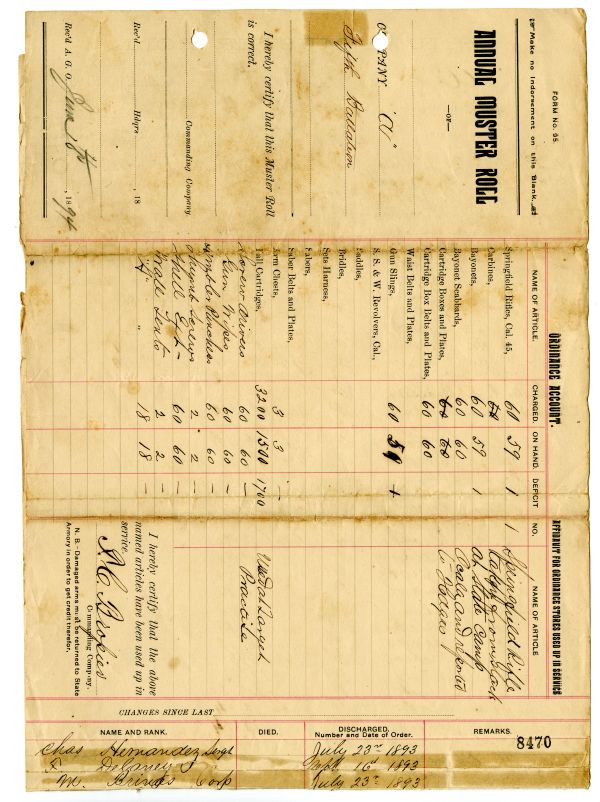 FORM No. 95.
Make no Indorsement on this Blank.
ANNUAL MUSTER ROLL
—OF—
COMPANY "A"
Fifth Battalion
I hereby certify that this Muster Roll
is correct.
Commanding Company.
Rec'd Hdqrs. , 18
Rec'd A. G. O. June 18th , 1894
ORDINANCE ACCOUNT.
NAME OF ARTICLE. CHARGED. ON HAND. DEFICIT
Springfield Rifles, Cal. 45, 60 59 1
Carbines,
Bayonets, 60 59 1
Bayonet Scabbards, 60 60
Cartridge Boxes and Plates, 60 60
Cartridge Box Belts and Plates, 60 60
Waist Belts and Plates,
Gun Slings, 60 59
S. S. & W. Revolvers, Cal.,
Saddles,
Bridles,
Sets Harness,
Sabers,
Saber Belts and Plates,
Arm Chests, 3 3 –
Ball Cartridges, 3200 1500 1700
Screw Drivers 60 60 –
Gun Wipes 60 60 –
Tumbler Punches 60 60 –
Thumb Screws 2 2 –
60 60 –
Wall Tents 2 2 –
"A" " 18 18 –
AFFIDAVIT FOR ORDINANCE STORES USED UP IN SERVICE
NO. NAME OF ARTICLE
1 Springfield Rifle
at State Camp
Ocala and reported
Used at Target
Practice
I hereby certify that the above
named articles have been used up in
service.
Commanding Company.
N. B.—Damaged arms must be returned to State
Armory in order to get credit therefor.
CHANGES SINCE LAST
NAME AND RANK. DIED. DISCHARGED. Number and Date of Order. REMARKS.
8470
Chas Hernandez Sergt July 23rd 1893
F. Delaney Sept 16th 1893
M. Corp July 23rd 1893